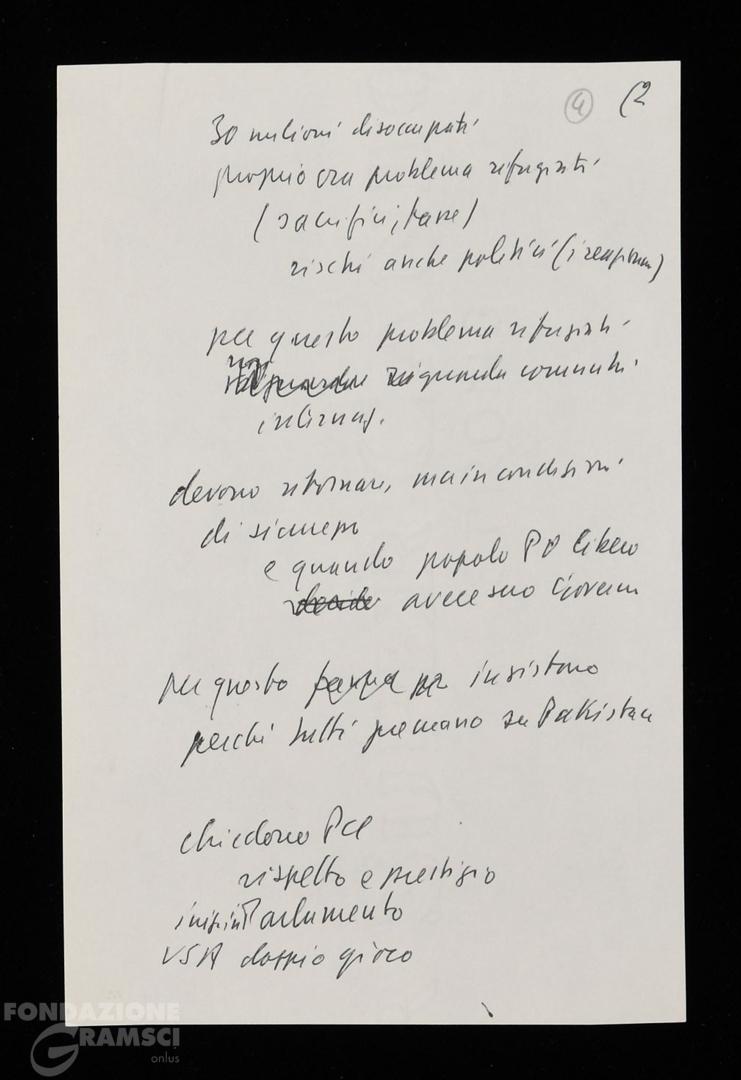 (4) (2
30 milioni disoccupati
proprio ora problema rifugiati
(sacrifici, tasse)
rischi anche politici (i reagiran)
per questo problema rifugiati
riguarda comunità
internaz.
devono ritornare, ma in condizioni
di sicurezza
e quando popolo PO libero
decide avere suo Govern
per questo insistono
perché tutti premano su Pakistan
chiedono PCI
rispetto e prestigio
iniziat Parlamento
USA doppio gioco
FONDAZIONE
GRAMSCI
onlus